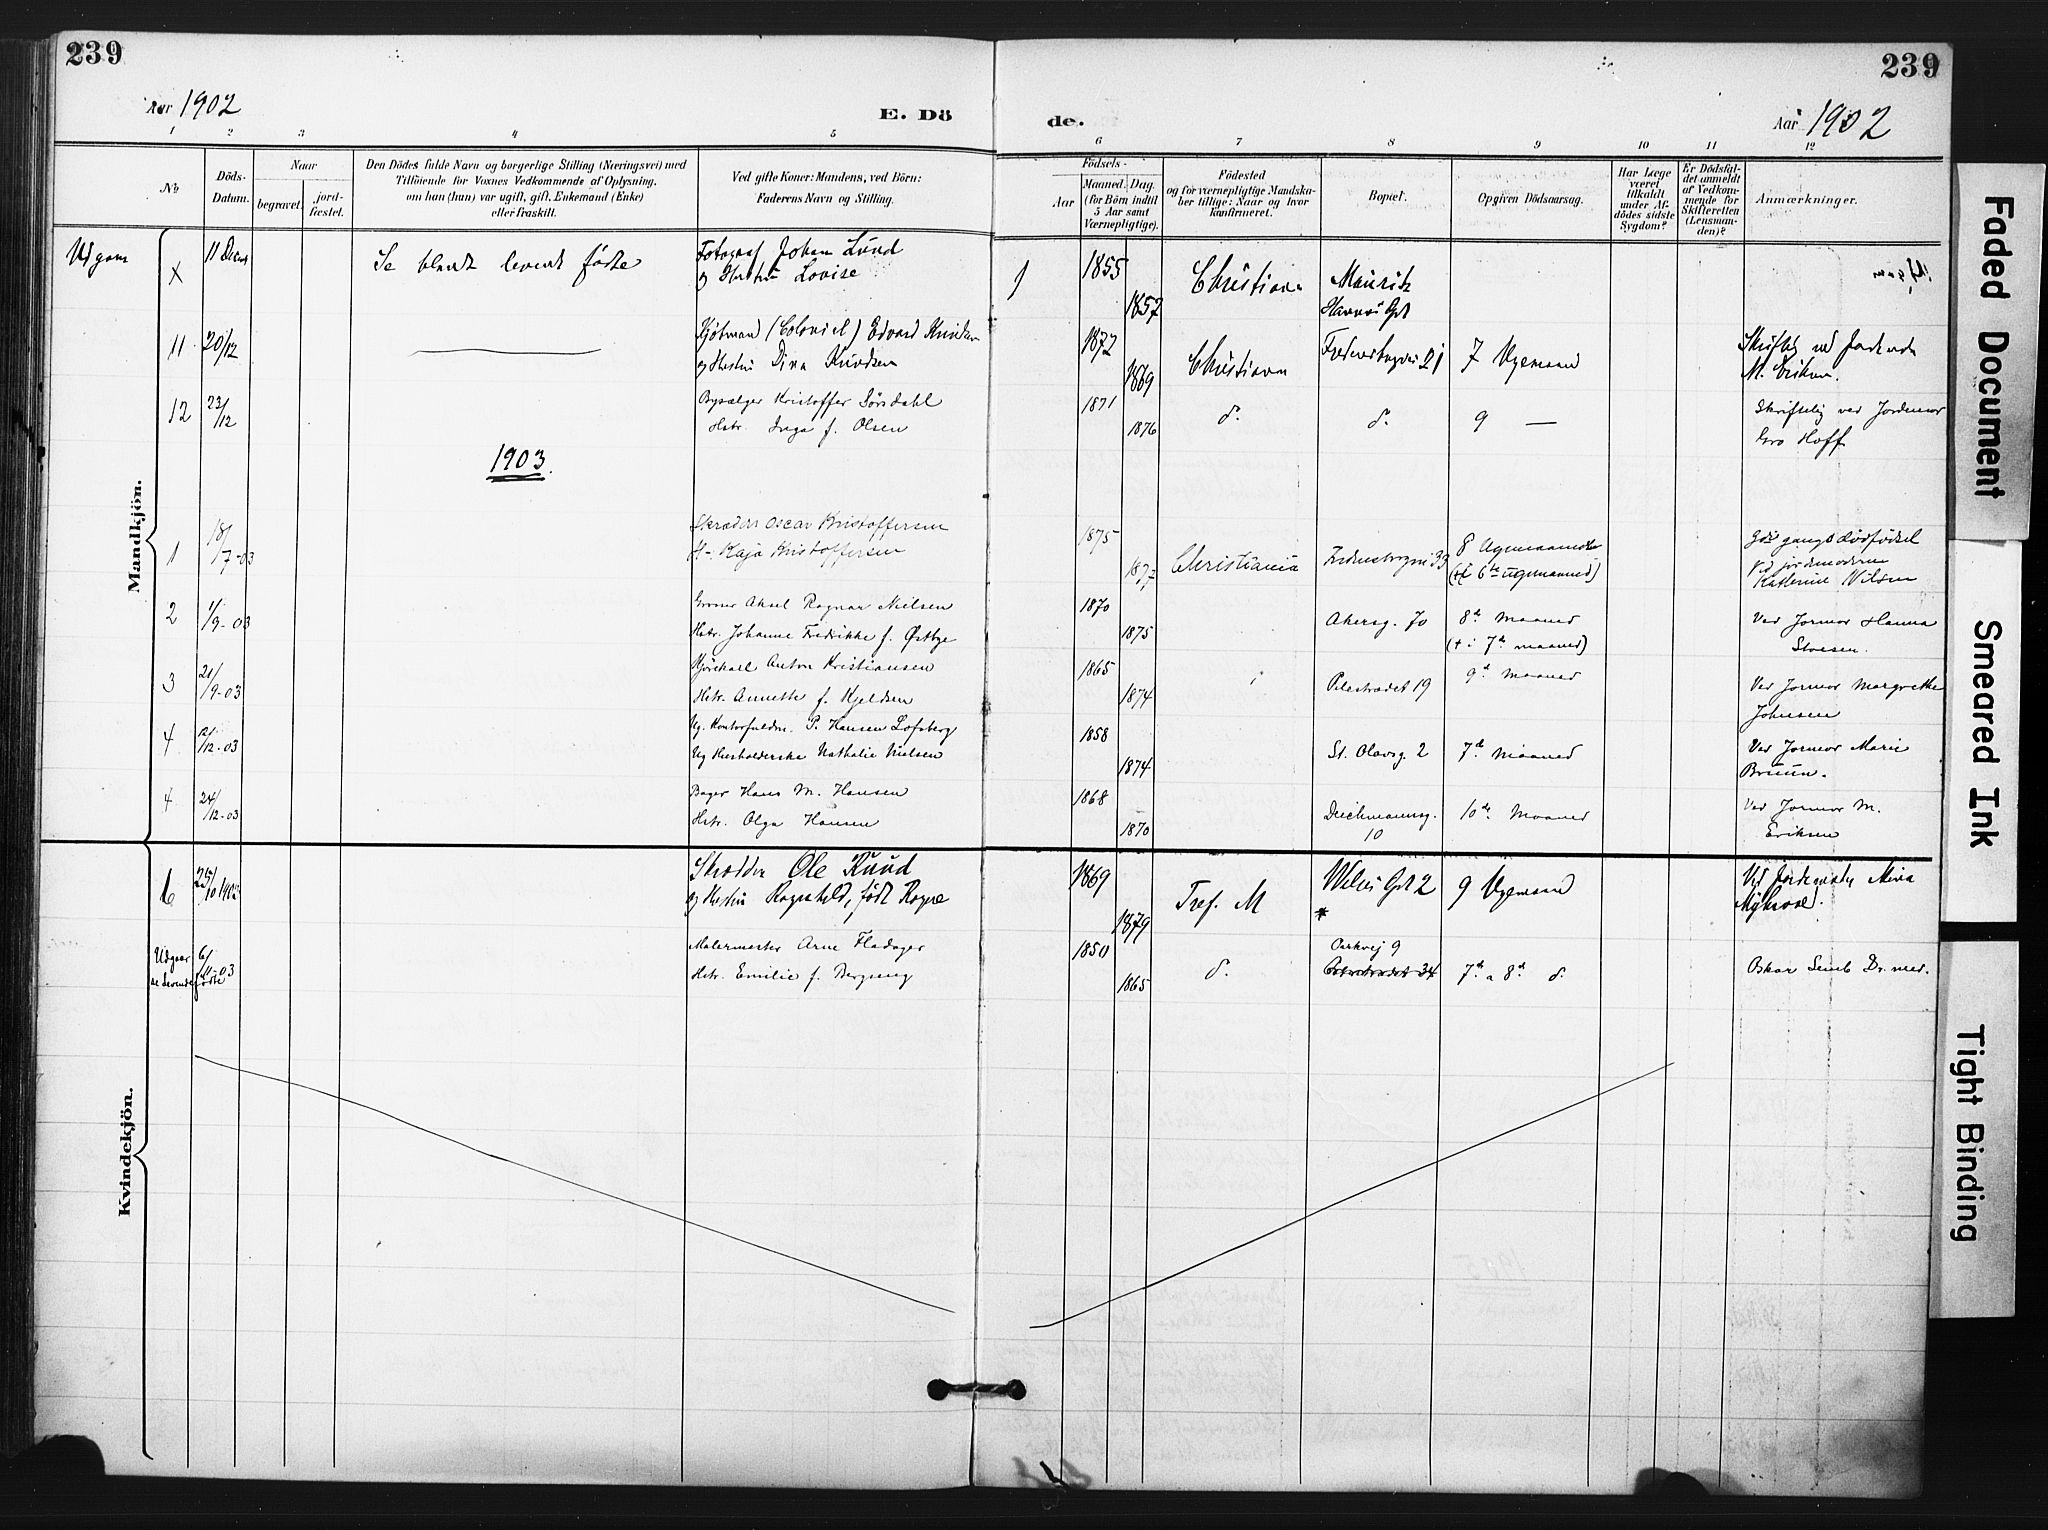 239
239
Aar 1902
E. Dö
de.
Aar 1902
1 2 3 4 5 6 7 8 9 10 11 12
No
Döds-
Datum.
Naar
begravet.
jord-
fæstet.
Den Dödes fulde Navn og borgerlige Stilling (Næringsvei) med
Tilföiende for Voxnes Vedkommende af Oplysning.
om han (hun) var ugift, gift, Enkemand (Enke)
eller fraskilt.
Ved gifte Koner: Mandens, ved Börn:
Faderens Navn og Stilling.
Födsels-
Aar
Maaned. Dag.
(for Börn indtil
5 Aar samt
Værnepligtige).
Födested
og for værnepligtige Mandska-
ber tillige: Naar og hvor
konfirmeret.
Bopæl.
Opgiven Dödsaarsag.
Har Læge
været
tilkaldt
under Af-
dödes sidste
Sygdom?
Er Dödsfal-
det anmeldt
af Vedkom-
mende for
Skifteretten
(Lensman-
den)?
Anmærkninger.
Mandkjön.
Udgaar
x
11
Se blandt levende fødte
Fotograf Johan Lund
og Hustru Lovise
1855
1857
Christiania
11
20/12
Edvard Knudsen
og Hustru Dina Knudsen
1872
1869
Christiania
21
7
Skriftlig ved
M. Eriksen.
12
23/12
Kristoffer Sörsdahl
Hstr. Inga f. Olsen
1871
1876
d.
d.
9 —
Skriftelig ved Jordmor
Gro Hoff
1903.
1
18/7-03
Skræder Oscar Kristoffersen
H- Kaja Kristoffersen
1875
1877
Christiania
33
8
gangs dødfødsel
Ved jordmoderen
Katherine Nilsen
2
1/9-03
Aksel Ragnar Nielsen
Hstr. Johanne Fredrikke f. Østbye
1870
1875
Akersg. 70
8de maaned
(+ i 7de maaned)
Ved Jormor Hanna
3
21/9-03
Kjörekarl Anton Kristiansen
Hstr. Annette f. Kjeldsen
1865
1874
Pilestrædet 19
9de maaned
Ved Jormor Margrethe
Johnsen
4
12/12-03
P. Hansen Lofsberg
Ug Husholderske Nathalie Nielsen
1858
1874
St. Olavsg. 2
7de maaned
Ved Jormor Marie
Bruun.
4
24/12-03
Bager Hans M. Hansen
Hstr. Olga Hansen
1868
1870
Deichmannsg.
10
10de Maaned
Ved Jormor M.
Eriksen
Kvindekjön.
6
25/10 1902
Skrædder Ole Ruud
og Hustru Ragnhild, født Rogne
1869
1879
Tref. M
2
*
9
Udgaar
se levende fødte
6/11-03
Malermester Arne Fladager
Hstr. Emilie f. Bergseng
1850
1865
d.
Parkvej 9
34
7de a 8de d.
Oskar Semb Dr. med.
Faded Document
Smeared Ink
Tight Binding